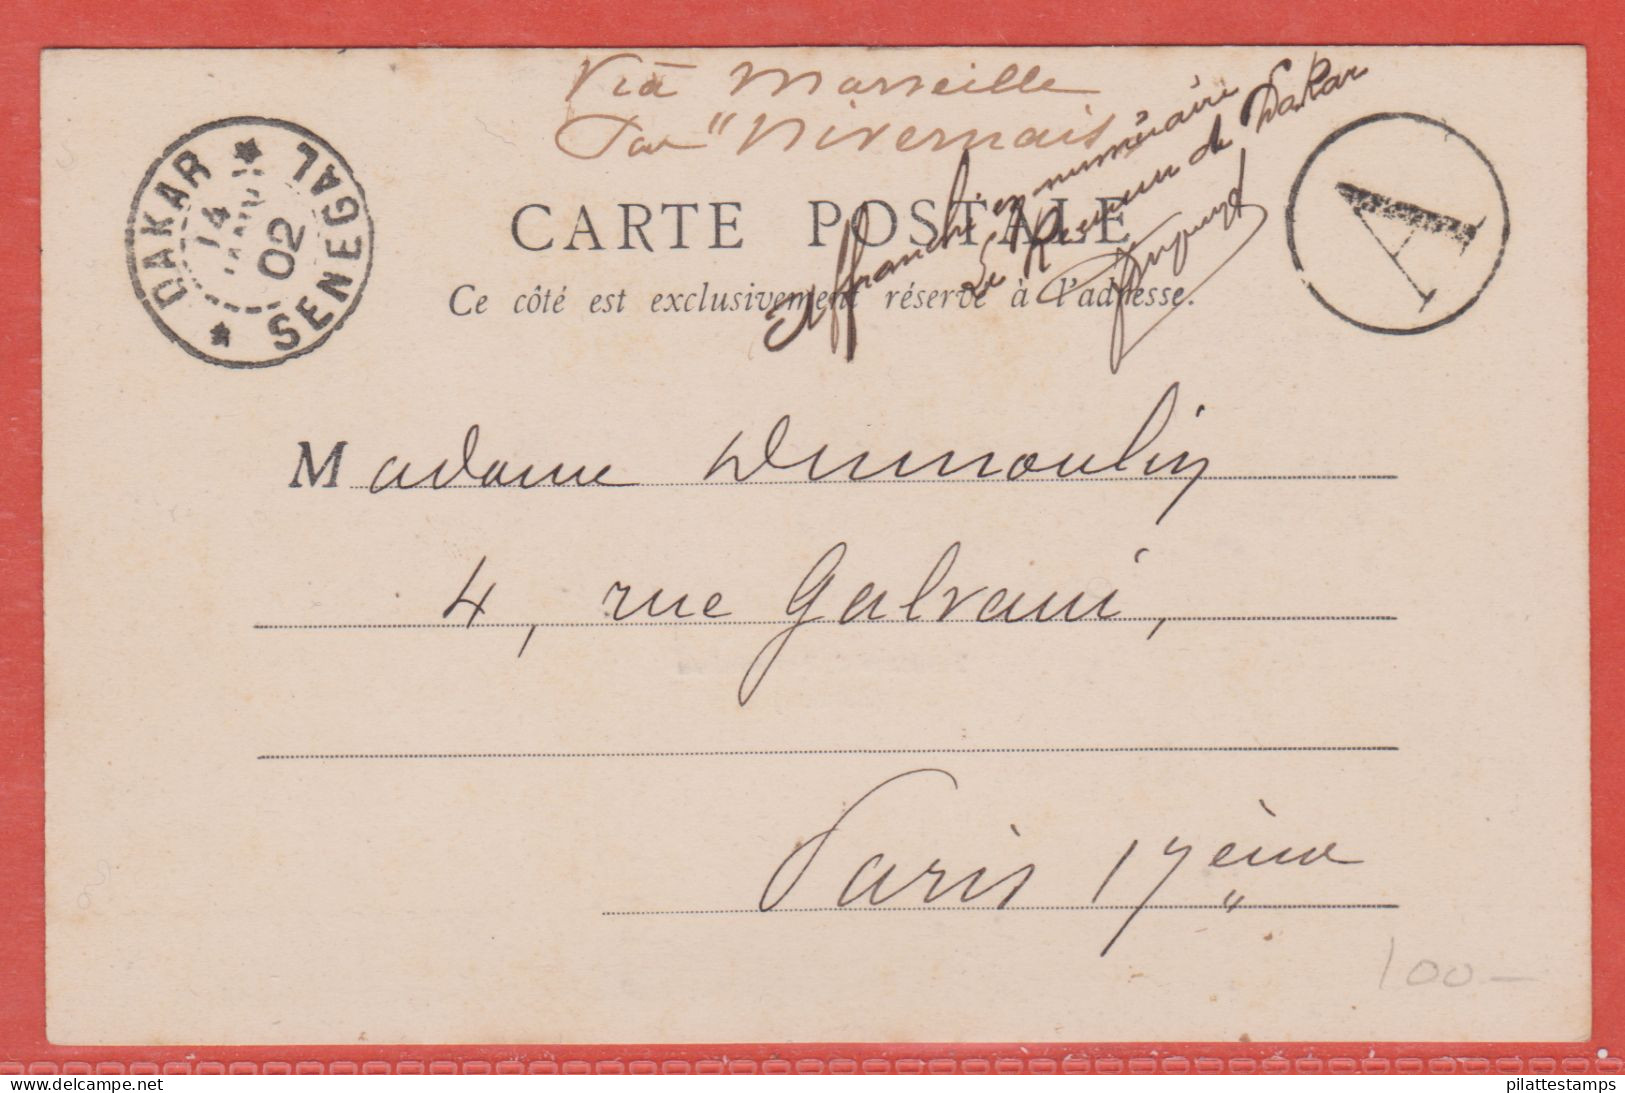 Via Marseille
Par "Nivernais"
Affranchi en numéraire
Le Receveur de Dakar
DAKAR
14
JANV
02
SENEGAL
A
CARTE POSTALE
Ce côté est exclusivement réservé à l'adresse.
Madame Dumoulin
4, rue Galvani,
Paris 17 ème
100-
pilattestamps